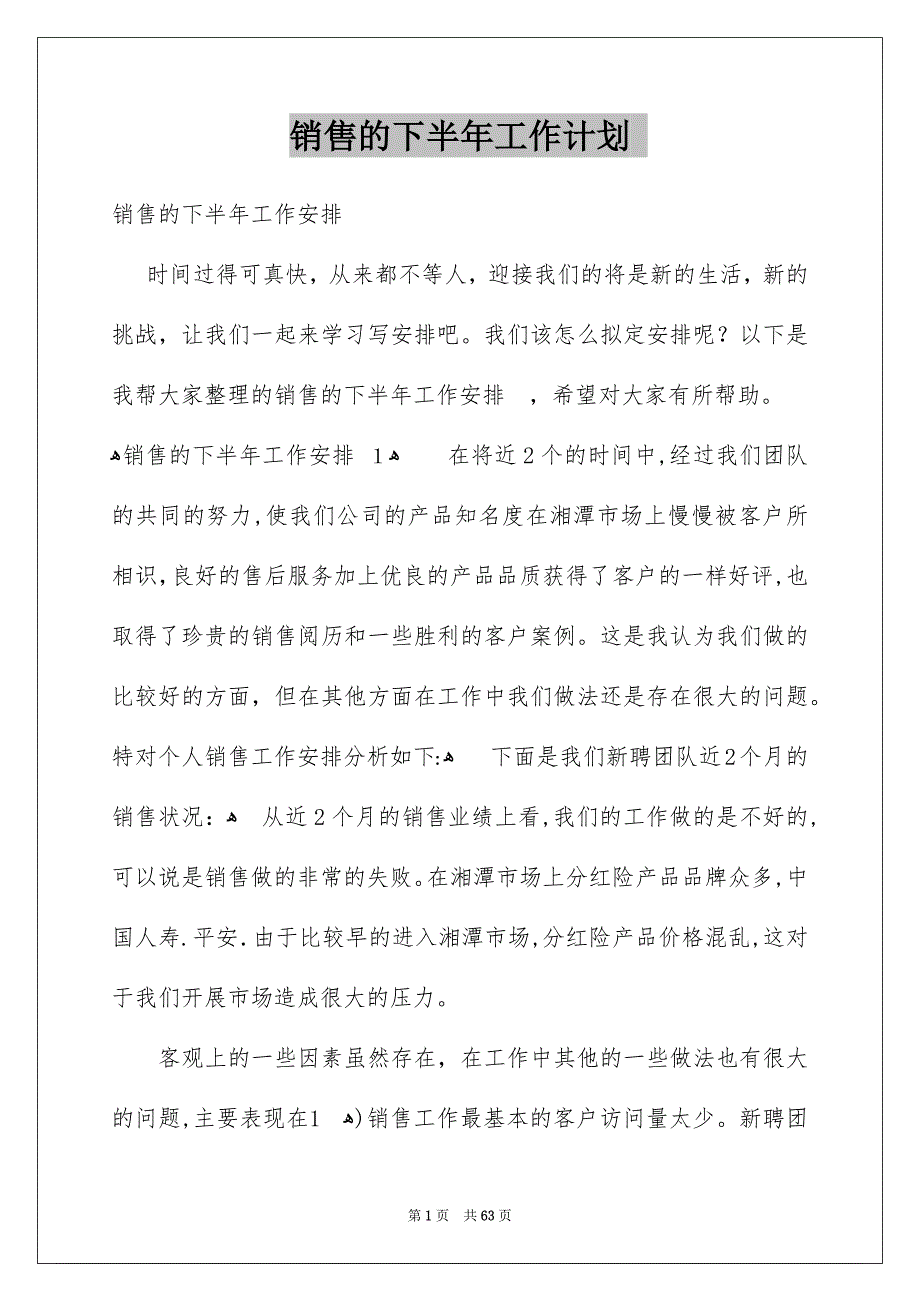 销售的下半年工作计划
销售的下半年工作安排
时间过得可真快，从来都不等人，迎接我们的将是新的生活，新的
挑战，让我们一起来学习写安排吧。我们该怎么拟定安排呢？以下是
我帮大家整理的销售的下半年工作安排 ，希望对大家有所帮助。
ﻫ销售的下半年工作安排 1ﻫ 在将近2个的时间中,经过我们团队
的共同的努力,使我们公司的产品知名度在湘潭市场上慢慢被客户所
相识,良好的售后服务加上优良的产品品质获得了客户的一样好评,也
取得了珍贵的销售阅历和一些胜利的客户案例。这是我认为我们做的
比较好的方面，但在其他方面在工作中我们做法还是存在很大的问题。
特对个人销售工作安排分析如下:ﻫ 下面是我们新聘团队近2个月的
销售状况：ﻫ 从近2个月的销售业绩上看,我们的工作做的是不好的,
可以说是销售做的非常的失败。在湘潭市场上分红险产品品牌众多,中
国人寿.平安.由于比较早的进入湘潭市场,分红险产品价格混乱,这对
于我们开展市场造成很大的压力。
客观上的一些因素虽然存在，在工作中其他的一些做法也有很大
的问题,主要表现在1ﻫ)销售工作最基本的客户访问量太少。新聘团
第 1 页 共 63 页